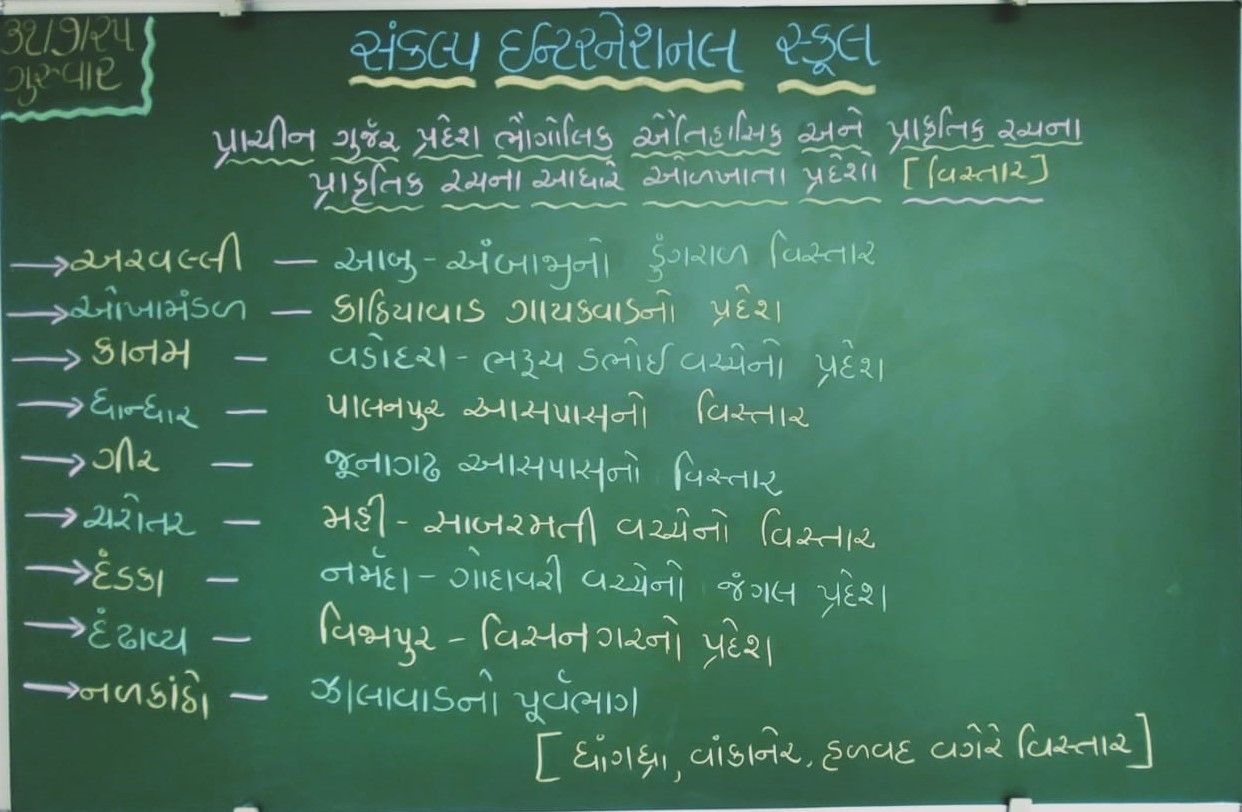 ૩૧/૭/૨૫
ગુરુવાર
સંકલ્પ ઇન્ટરનેશનલ સ્કૂલ
પ્રાચીન ગુર્જર પ્રદેશ ભૌગોલિક ઐતિહાસિક અને પ્રાકૃતિક રચના
પ્રાકૃતિક રચના આધારે ઓળખાતા પ્રદેશો [વિસ્તાર]
→અરવલ્લી — આબુ - અંબાજીનો ડુંગરાળ વિસ્તાર
→ઓખામંડળ — કાઠિયાવાડ ગાયકવાડનો પ્રદેશ
→ કાનમ — વડોદરા - ભરૂચ ડભોઈ વચ્ચેનો પ્રદેશ
→ ધાન્ધાર — પાલનપુર આસપાસનો વિસ્તાર
→ ગીર — જૂનાગઢ આસપાસનો વિસ્તાર
→ ચરોતર — મહી - સાબરમતી વચ્ચેનો વિસ્તાર
→દંડકા — નર્મદા - ગોદાવરી વચ્ચેનો જંગલ પ્રદેશ
→દંઢાવ્ય — વિજાપુર - વિસનગરનો પ્રદેશ
→નળકાંઠો — ઝાલાવાડનો પૂર્વભાગ
[ ધ્રાંગધ્રા, વાંકાનેર, હળવદ વગેરે વિસ્તાર ]